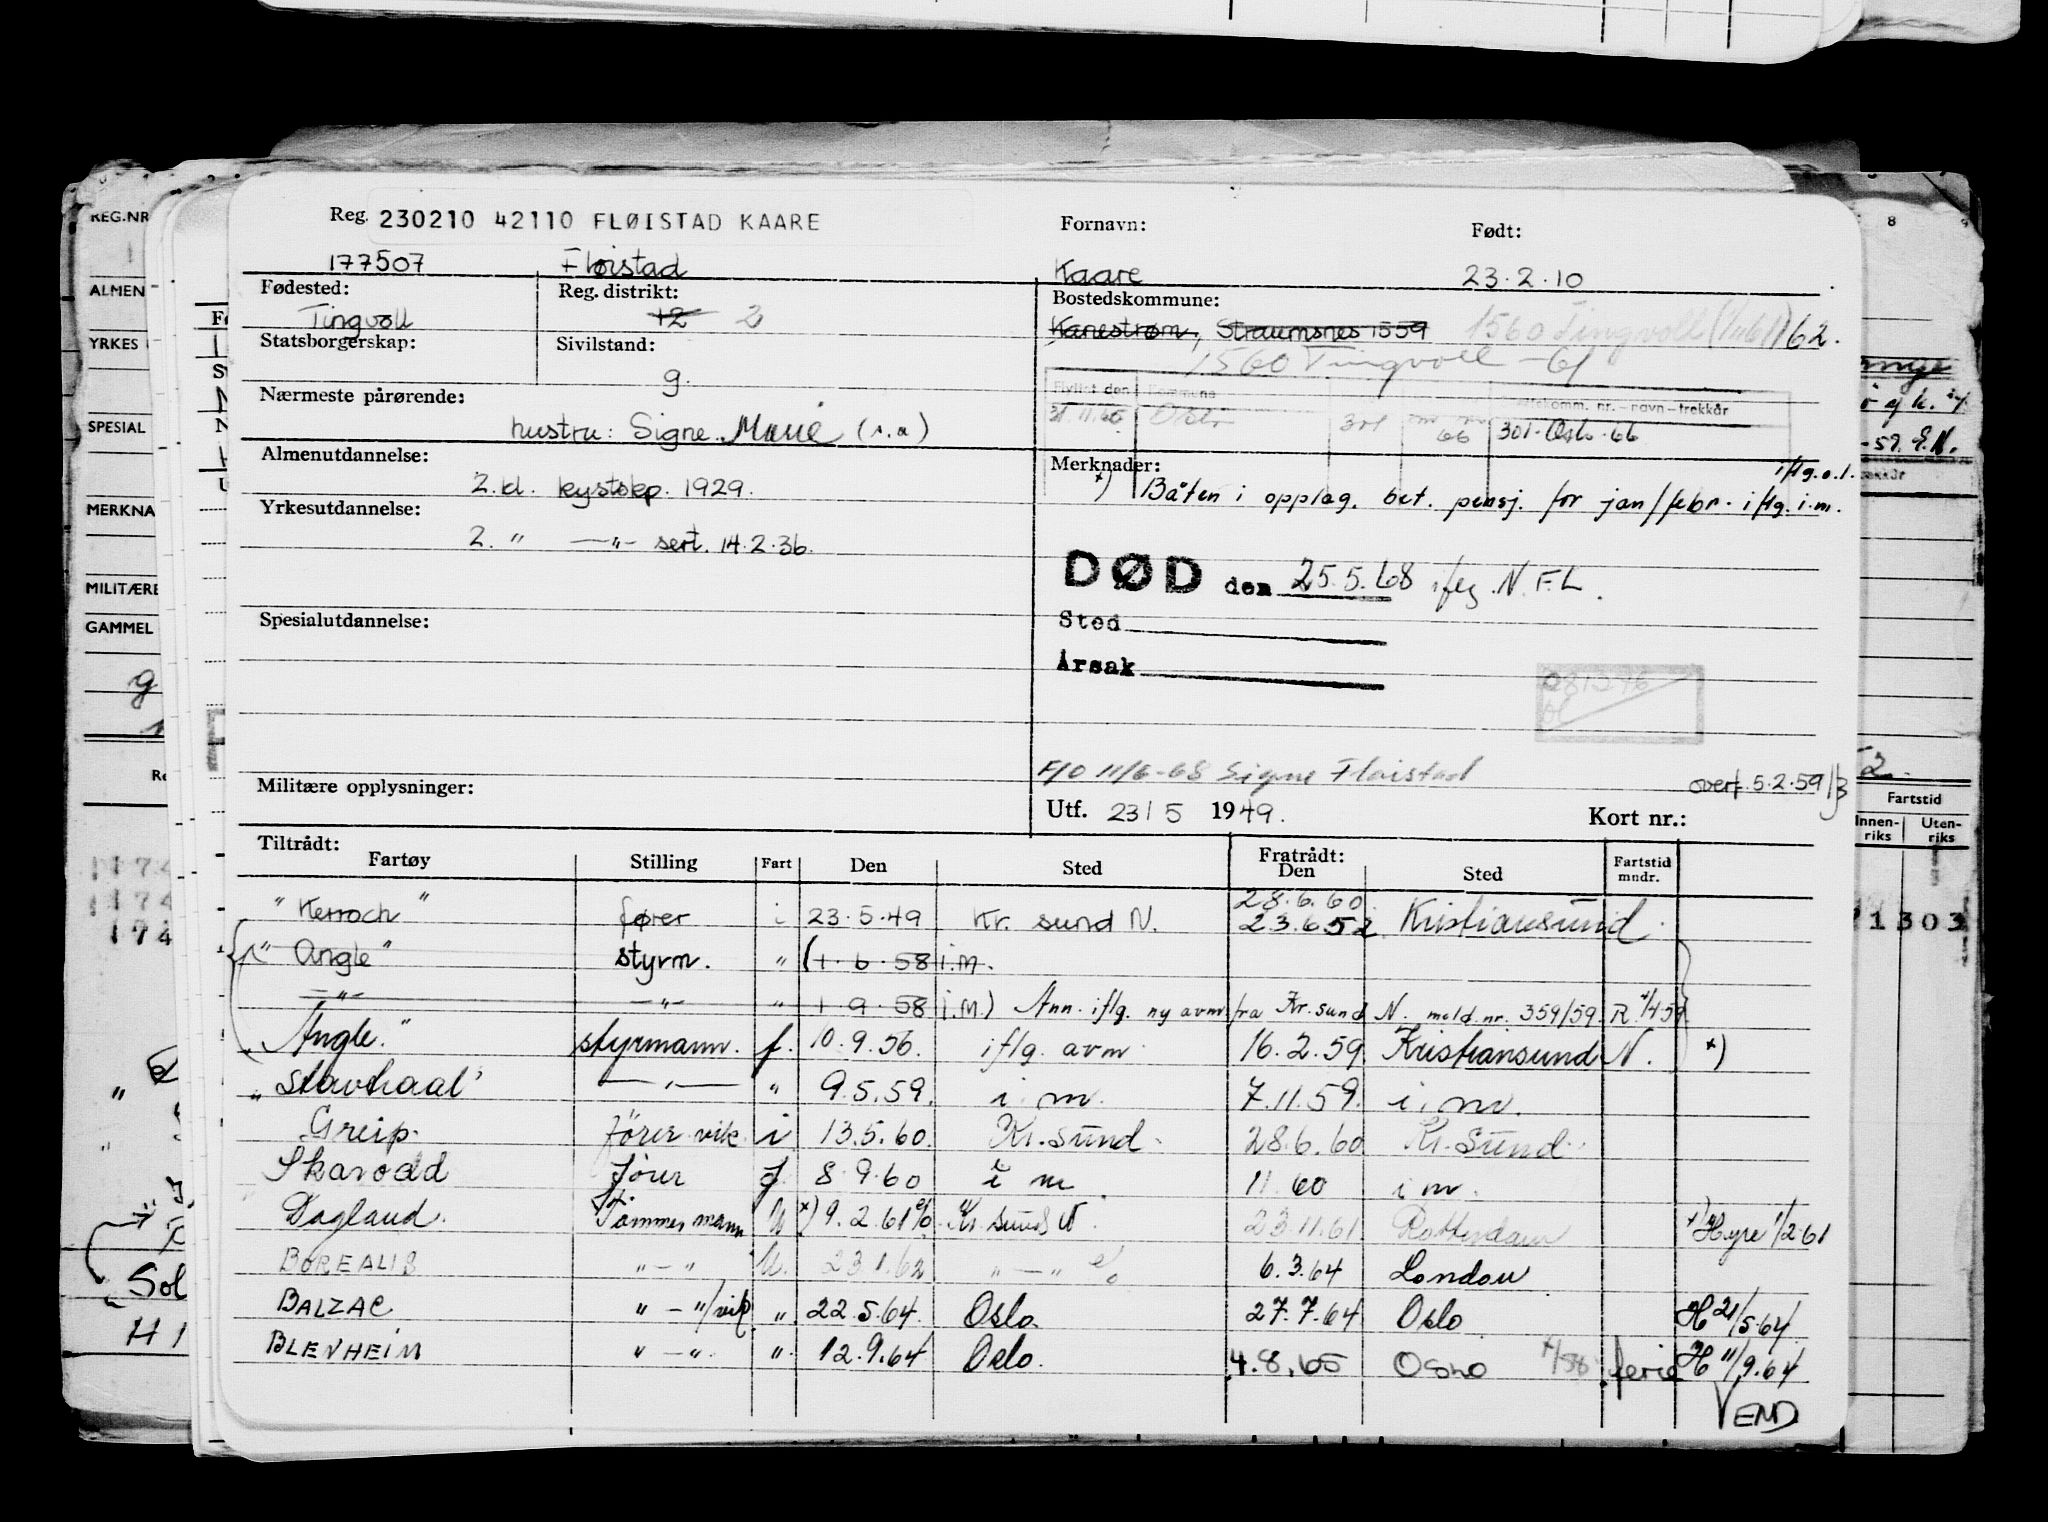 Reg. 230210 42110 FLØISTAD KAARE Fornavn: Født:
177507 Fløistad Kaare 23.2.10
Fødested: Reg. distrikt: Bostedskommune:
Tingvoll 12 2 Kanestrøm, Straumsnes 1559 1560 Tingvoll 62.
Statsborgerskap: Sivilstand: 1560 Tingvoll -61
g.
Flyttet den Kommune nr.-navn-trekkår
Nærmeste pårørende: 31.11.65 Oslo 301 66 301-Oslo-66
hustru: Signe Marie (s.a)
Almenutdannelse: Merknader: iflg.o.l.
2. kl. kystskp. 1929. x) Båten i opplag. bet. pensj. for jan/febr. iflg. i.m.
Yrkesutdannelse:
2. " —"— sert. 14.2.36.
DØD den 25.5.68 iflg. N.F.L.
Spesialutdannelse: Sted
Årsak
F/O 11/6-68 Signe Fløistad
Militære opplysninger: overf. 5.2.59
Utf. 23/5 1949. Kort nr.:
Tiltrådt: Fratrådt:
Fartøy Stilling Fart Den Sted Den Sted Fartstid mndr.
28.6.60.
" Kerroch " fører i 23.5.49 Kr. sund N. 23.6.52 Kristiansund
" Angle " styrm. " (1.6.58 i.m.
—"— —"— " 1.9.58 i.m.) Ann. iflg. ny avm fra Kr.sund N. meld.nr. 359/59. R. 4/4 59
" Angle." styrmann. f. 10.9.56. iflg. avm 16.2.59. Kristiansund N. x)
" Stavhaal " —"— " 9.5.59. i. m. 7.11.59. i. m.
Greip. fører vik. i 13.5.60. Kr.sund. 28.6.60 Kr. Sund.
Skarodd fører f. 8.9.60 i m 11.60 i m.
Dagland. Tømmermann U x) 9.2.61 % Kr. sund N. 23.11.61. Rotterdam x) Hyre 1/2 61
BOREALIS " — " U. 23.1.62 " — " % 6.3.64 London
BALZAC " — "/vik " 22.5.64. Oslo. 27.7.64 Oslo H 21/5.64.
BLENHEIM " — " " 12.9.64 Oslo. 4.8.65 OSLO ferie H 11/9.64
END
REG.NR
ALMEN
YRKES
SPESIAL
MERKNA
MILITÆRE
GAMMEL
8
Fartstid
Innenriks Utenriks
1303
Sol
H 1